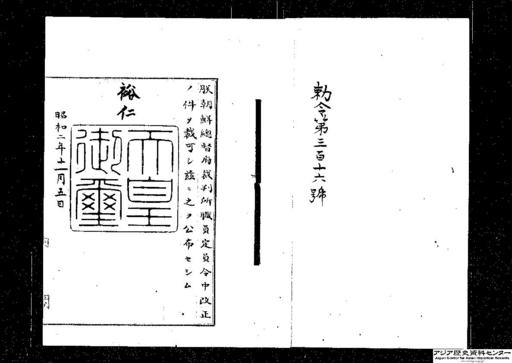 勅令第三百十六號
朕朝鮮總督府裁判所職員定員令中改正
ノ件ヲ裁可シ茲ニ之ヲ公布セシム
裕仁
天皇御璽
昭和二年十一月五日
内閣
アジア歴史資料センター
Japan Center for Asian Historical Records